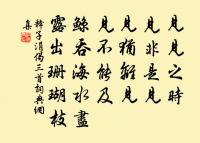 見見之時
見非是見
見猶離見
見不能及
鯨吞海水盡
露出珊瑚枝
釋子涓偈三首詞典網
集